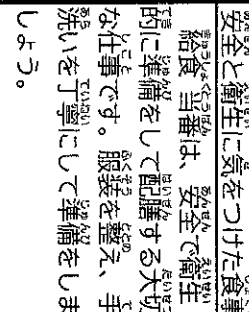 安全と衛生に気をつけた食事
給食当番は、安全で衛生
的に準備をして配膳する大切
な仕事です。服装を整え、手
洗いを丁寧にして準備をしま
しょう。